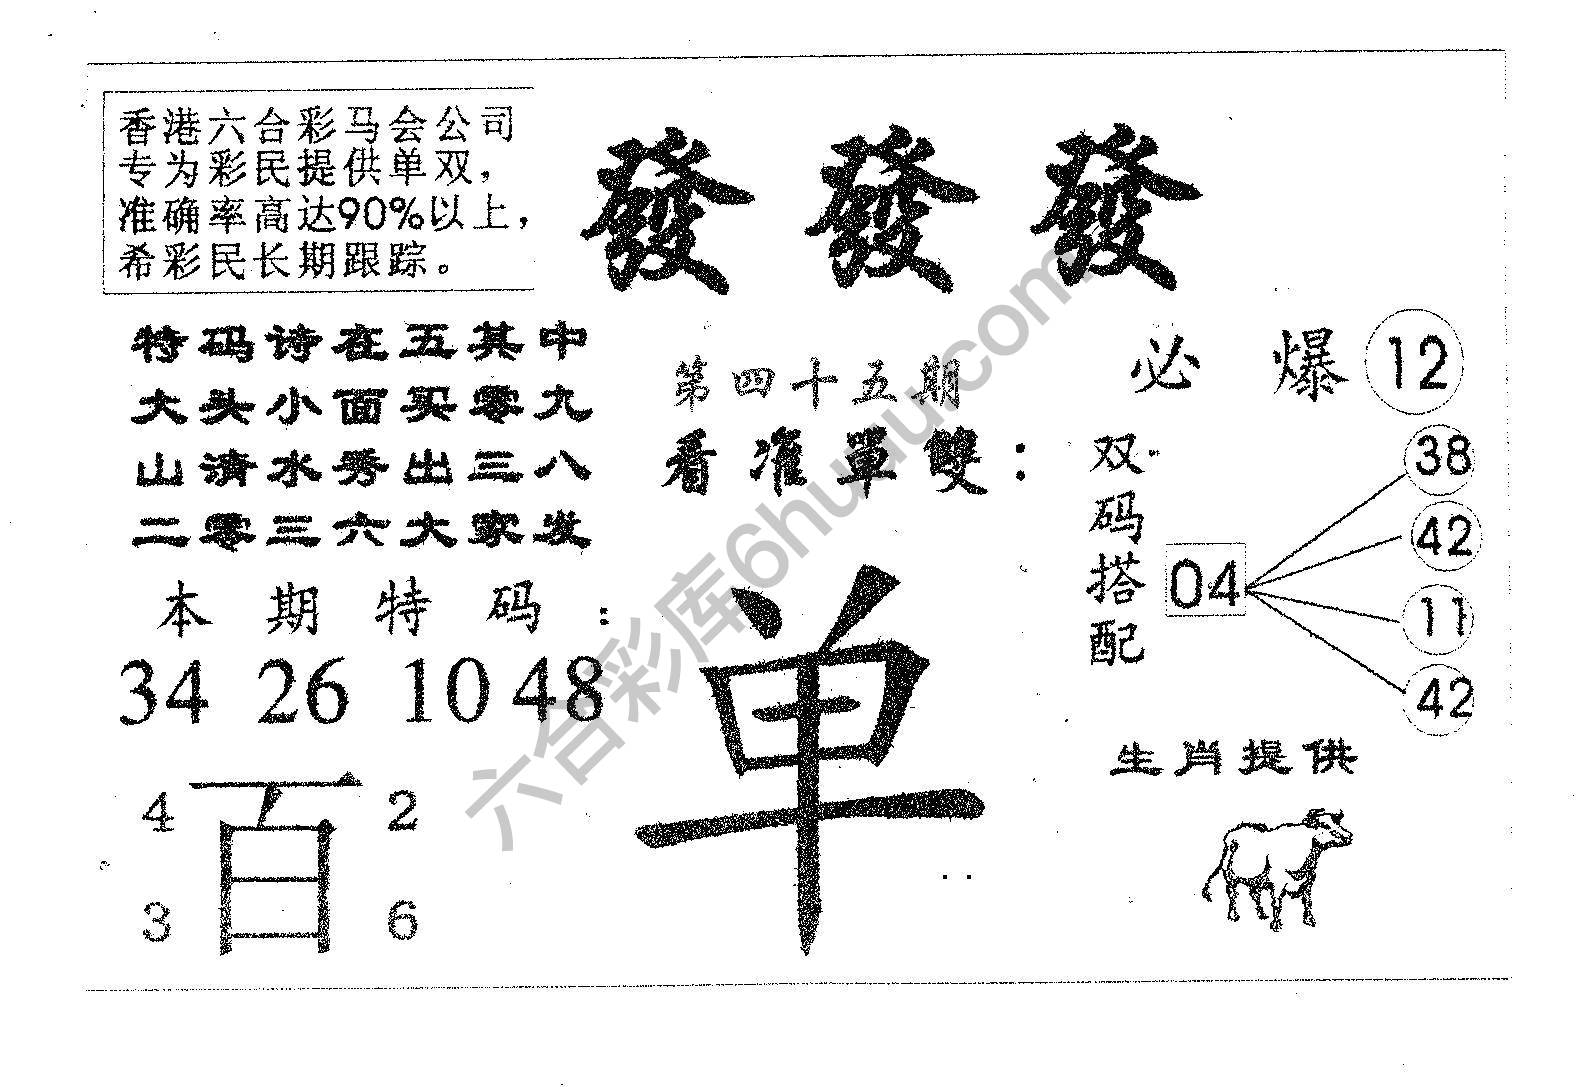 香港六合彩马会公司
专为彩民提供单双，
准确率高达90%以上，
希彩民长期跟踪。
發發發
特码诗在五其中
大头小面买零九
山清水秀出三八
二零三六大家发
本期特码：
34 26 10 48
4 百 2
3 6
第四十五期
看准單雙：
单
必爆 12
双码搭配
04
38
42
11
42
生肖提供
六合彩库6huku.com